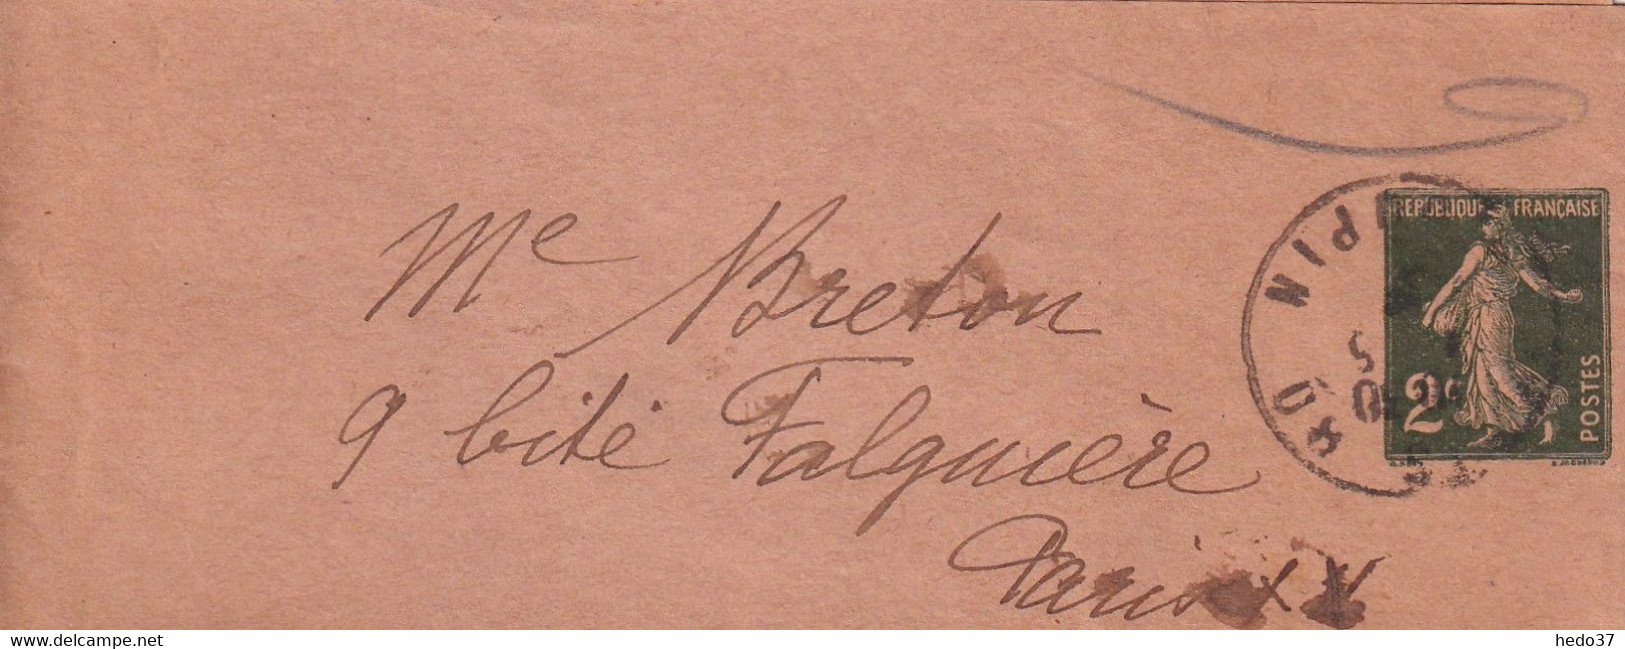 RÉPUBLIQUE FRANÇAISE
2c
POSTES
Me Breton
9 Cité Falguière
Paris XV
www.delcampe.net
hedo37